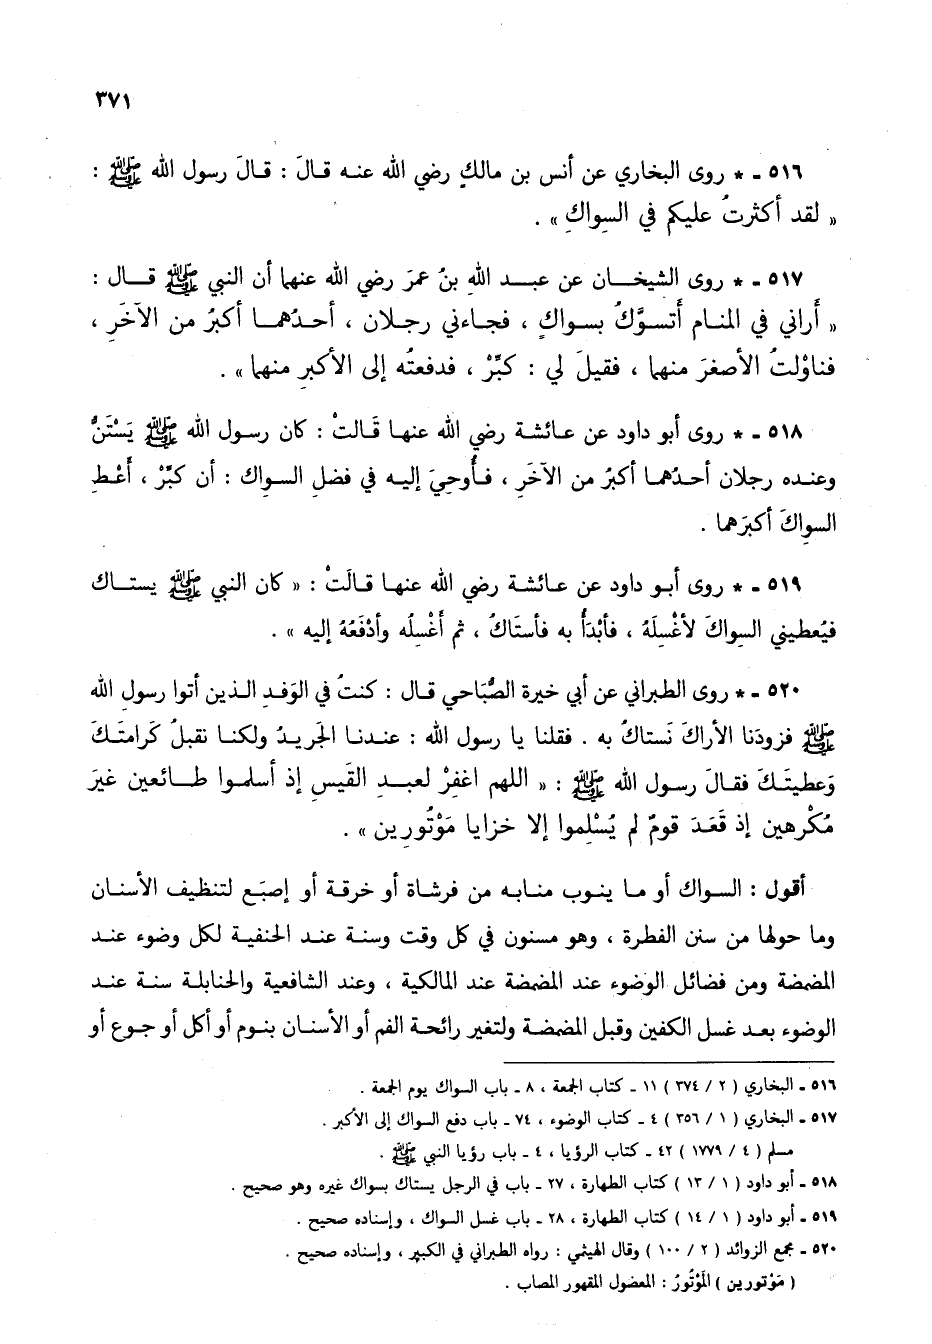 ٣٧١
٥١٦ - * روى البخاري عن أنس بن مالكٍ رضي الله عنه قالَ : قالَ رسول الله ﷺ :
« لقد أكثرتُ عليكم في السِواكِ » .
٥١٧ - * روى الشيخان عن عبد اللهِ بنُ عمرَ رضي الله عنهما أن النبي ﷺ قال :
« أَراني في المنام أَتسوَّكُ بسواكٍ ، فجاءني رجلان ، أحدُهما أكبرُ من الآخَرِ ،
فناوَلْتُ الأصغرَ منهما ، فقيلَ لي : كبِّرْ ، فدفعتُه إلى الأكبرِ منهما » .
٥١٨ - * روى أبو داود عن عائشة رضي الله عنها قَالتْ : كان رسول الله ﷺ يَسْتَنُّ
وعنده رجلان أحدُهما أكبرُ من الآخَرِ ، فأُوحِيَ إليه في فضلِ السواك : أن كبِّرْ ، أَعْطِ
السِواكَ أكبَرَهما .
٥١٩ - * روى أبو داود عن عائشة رضي الله عنها قالَتْ : « كان النبي ﷺ يستاك
فيُعطيني السِواكَ لأغْسِلَهُ ، فأبْدَأُ به فأستَاكُ ، ثم أَغْسِلُه وأدْفَعُهُ إليه » .
٥٢٠ - * روى الطبراني عن أبي خيرة الصُّبَاحي قال : كنتُ في الوَفدِ الذين أتوا رسول الله
ﷺ فزودَنا الأراكَ نَستاكُ به . فقلنا يا رسول الله : عندنا الجَريدُ ولكنا نقبلُ كَرامتَكَ
وَعطيتَكَ فقالَ رسول الله ﷺ : « اللهم اغفِرْ لعبدِ القَيسِ إذ أسلموا طائعين غيرَ
مُكْرهين إذ قَعَدَ قومٌ لم يُسْلِموا إلا خزايا مَوْتُورِين » .
أقول : السواك أو ما ينوب منابه من فرشاة أو خرقة أو إصبَع لتنظيف الأسنان
وما حولها من سنن الفطرة ، وهو مسنون في كل وقت وسنة عند الحنفية لكل وضوء عند
المضمضة ومن فضائل الوضوء عند المضمضة عند المالكية ، وعند الشافعية والحنابلة سنة عند
الوضوء بعد غسل الكفين وقبل المضمضة ولتغير رائحة الفم أو الأسنان بنوم أو أكل أو جوع أو
٥١٦ - البخاري ( ٢ / ٣٧٤ ) ١١ - كتاب الجمعة ، ٨ - باب السواك يوم الجمعة .
٥١٧ - البخاري ( ١ / ٣٥٦ ) ٤ - كتاب الوضوء ، ٧٤ - باب دفع السواك إلى الأكبر .
مسلم ( ٤ / ١٧٧٩ ) ٤٢ - كتاب الرؤيا ، ٤ - باب رؤيا النبي ﷺ .
٥١٨ - أبو داود ( ١ / ١٣ ) كتاب الطهارة ، ٢٧ - باب في الرجل يستاك بسواك غيره وهو صحيح .
٥١٩ - أبو داود ( ١ / ١٤ ) كتاب الطهارة ، ٢٨ - باب غسل السواك ، وإسناده صحيح .
٥٢٠ - مجمع الزوائد ( ٢ / ١٠٠ ) وقال الهيثمي : رواه الطبراني في الكبير ، وإسناده صحيح .
( مَوْتورين ) المَوْتُورُ : المعضول المقهور المصاب .